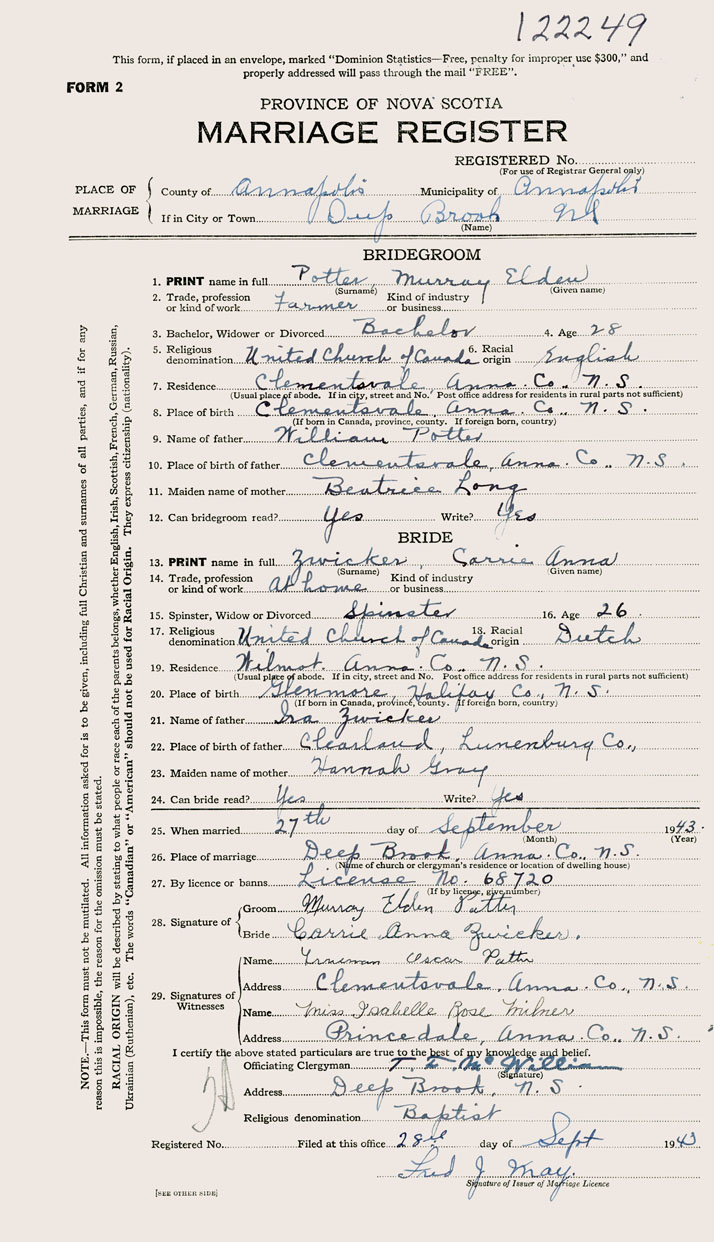 122249
This form, if placed in an envelope, marked "Dominion Statistics—Free, penalty for improper use $300," and
properly addressed will pass through the mail "FREE".
FORM 2
PROVINCE OF NOVA SCOTIA
MARRIAGE REGISTER
REGISTERED No.
(For use of Registrar General only)
PLACE OF MARRIAGE
County of Annapolis Municipality of Annapolis
If in City or Town Deep Brook NS
(Name)
BRIDEGROOM
1. PRINT name in full Potter, Murray Elden
(Surname) (Given name)
2. Trade, profession or kind of work Farmer Kind of industry or business
3. Bachelor, Widower or Divorced Bachelor 4. Age 28
5. Religious denomination United Church of Canada 6. Racial origin English
7. Residence Clementsvale, Anna. Co., N.S.
(Usual place of abode. If in city, street and No. Post office address for residents in rural parts not sufficient)
8. Place of birth Clementsvale, Anna. Co., N.S.
(If born in Canada, province, county. If foreign born, country)
9. Name of father William Potter
10. Place of birth of father Clementsvale, Anna. Co., N.S.
11. Maiden name of mother Beatrice Long
12. Can bridegroom read? Yes Write? Yes
BRIDE
13. PRINT name in full Zwicker, Carrie Anna
(Surname) (Given name)
14. Trade, profession or kind of work At home Kind of industry or business
15. Spinster, Widow or Divorced Spinster 16. Age 26
17. Religious denomination United Church of Canada 18. Racial origin Dutch
19. Residence Wilmot. Anna. Co., N.S.
(Usual place of abode. If in city, street and No. Post office address for residents in rural parts not sufficient)
20. Place of birth Glenmore, Halifax Co., N.S.
(If born in Canada, province, county. If foreign born, country)
21. Name of father Ira Zwicker
22. Place of birth of father Clearland, Lunenburg Co.,
23. Maiden name of mother Hannah Gray
24. Can bride read? Yes Write? Yes
25. When married 27th day of September 1943.
(Month) (Year)
26. Place of marriage Deep Brook, Anna. Co., N.S.
(Name of church or clergyman's residence or location of dwelling house)
27. By licence or banns License No. 68720
(If by license, give number)
28. Signature of
Groom Murray Elden Potter
Bride Carrie Anna Zwicker.
29. Signatures of Witnesses
Name Oscar Potter
Address Clementsvale, Anna. Co., N.S.
Name Miss Isabelle Rose Milner
Address Princedale, Anna. Co., N.S.
I certify the above stated particulars are true to the best of my knowledge and belief.
Officiating Clergyman McWilliam
(Signature)
Address Deep Brook, N.S.
Religious denomination Baptist
Registered No. Filed at this office 28rd day of Sept 1943
Fred J May.
Signature of Issuer of Marriage Licence
[SEE OTHER SIDE]
NOTE.—This form must not be mutilated. All information asked for is to be given, including full Christian and surnames of all parties, and if for any
reason this is impossible, the reason for the omission must be stated.
RACIAL ORIGIN will be described by stating to what people or race each of the parents belongs, whether English, Irish, Scottish, French, German, Russian,
Ukrainian (Ruthenian), etc. The words "Canadian" or "American" should not be used for Racial Origin. They express citizenship (nationality).